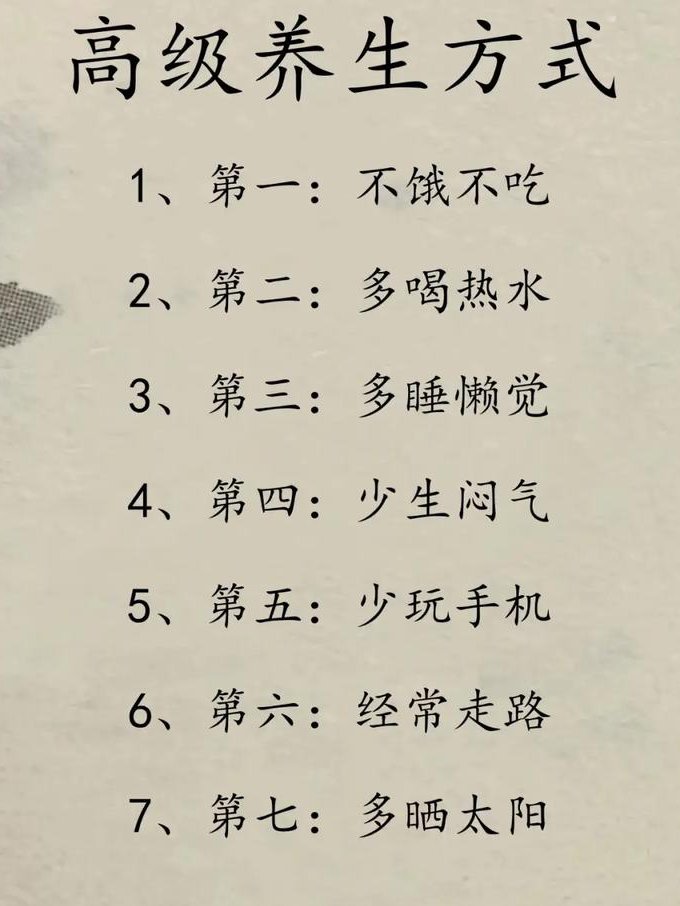 高级养生方式
1、第一：不饿不吃
2、第二：多喝热水
3、第三：多睡懒觉
4、第四：少生闷气
5、第五：少玩手机
6、第六：经常走路
7、第七：多晒太阳